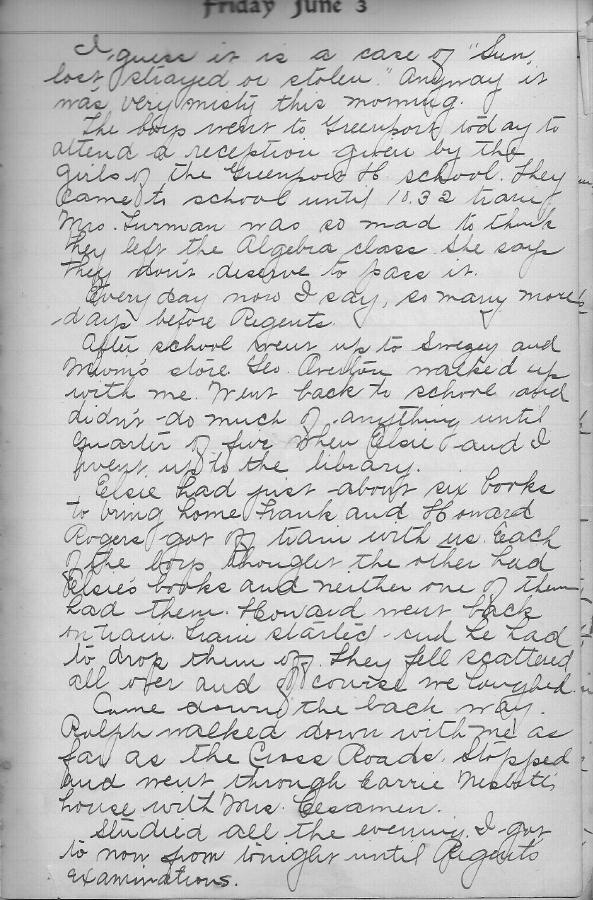 Friday June 3
I guess it is a case of "Sun,
lost strayed or stolen." Anyway it
was very misty this morning.
The boys went to Greenport today to
attend a reception given by the
girls of the Greenport H school. They
came to school until 10.32 train
Mrs. Furman was so mad to think
they left the Algebra class. She says
they don't deserve to pass it.
Every day now I say, so many more
days before Regents.
After school went up to Swezey and
store Geo. Overton walked up
with me. Went back to school and
didn't do much of anything until
quarter of five when Elsie and I
went up to the library.
Elsie had just about six books
to bring home Frank and Howard
Rogers got of train with us. Each
of the boys thought the other had
Elsie's books and neither one of them
had them. Howard went back
on train. Train started and he had
to drop them off. They fell scattered
all over and of course we laughed.
Came down the back way.
Ralph walked down with me as
far as the Cross Roads. Stopped
and went through Carrie
house with Mrs.
Studied all the evening. I got
to now from tonight until Regents
examinations.